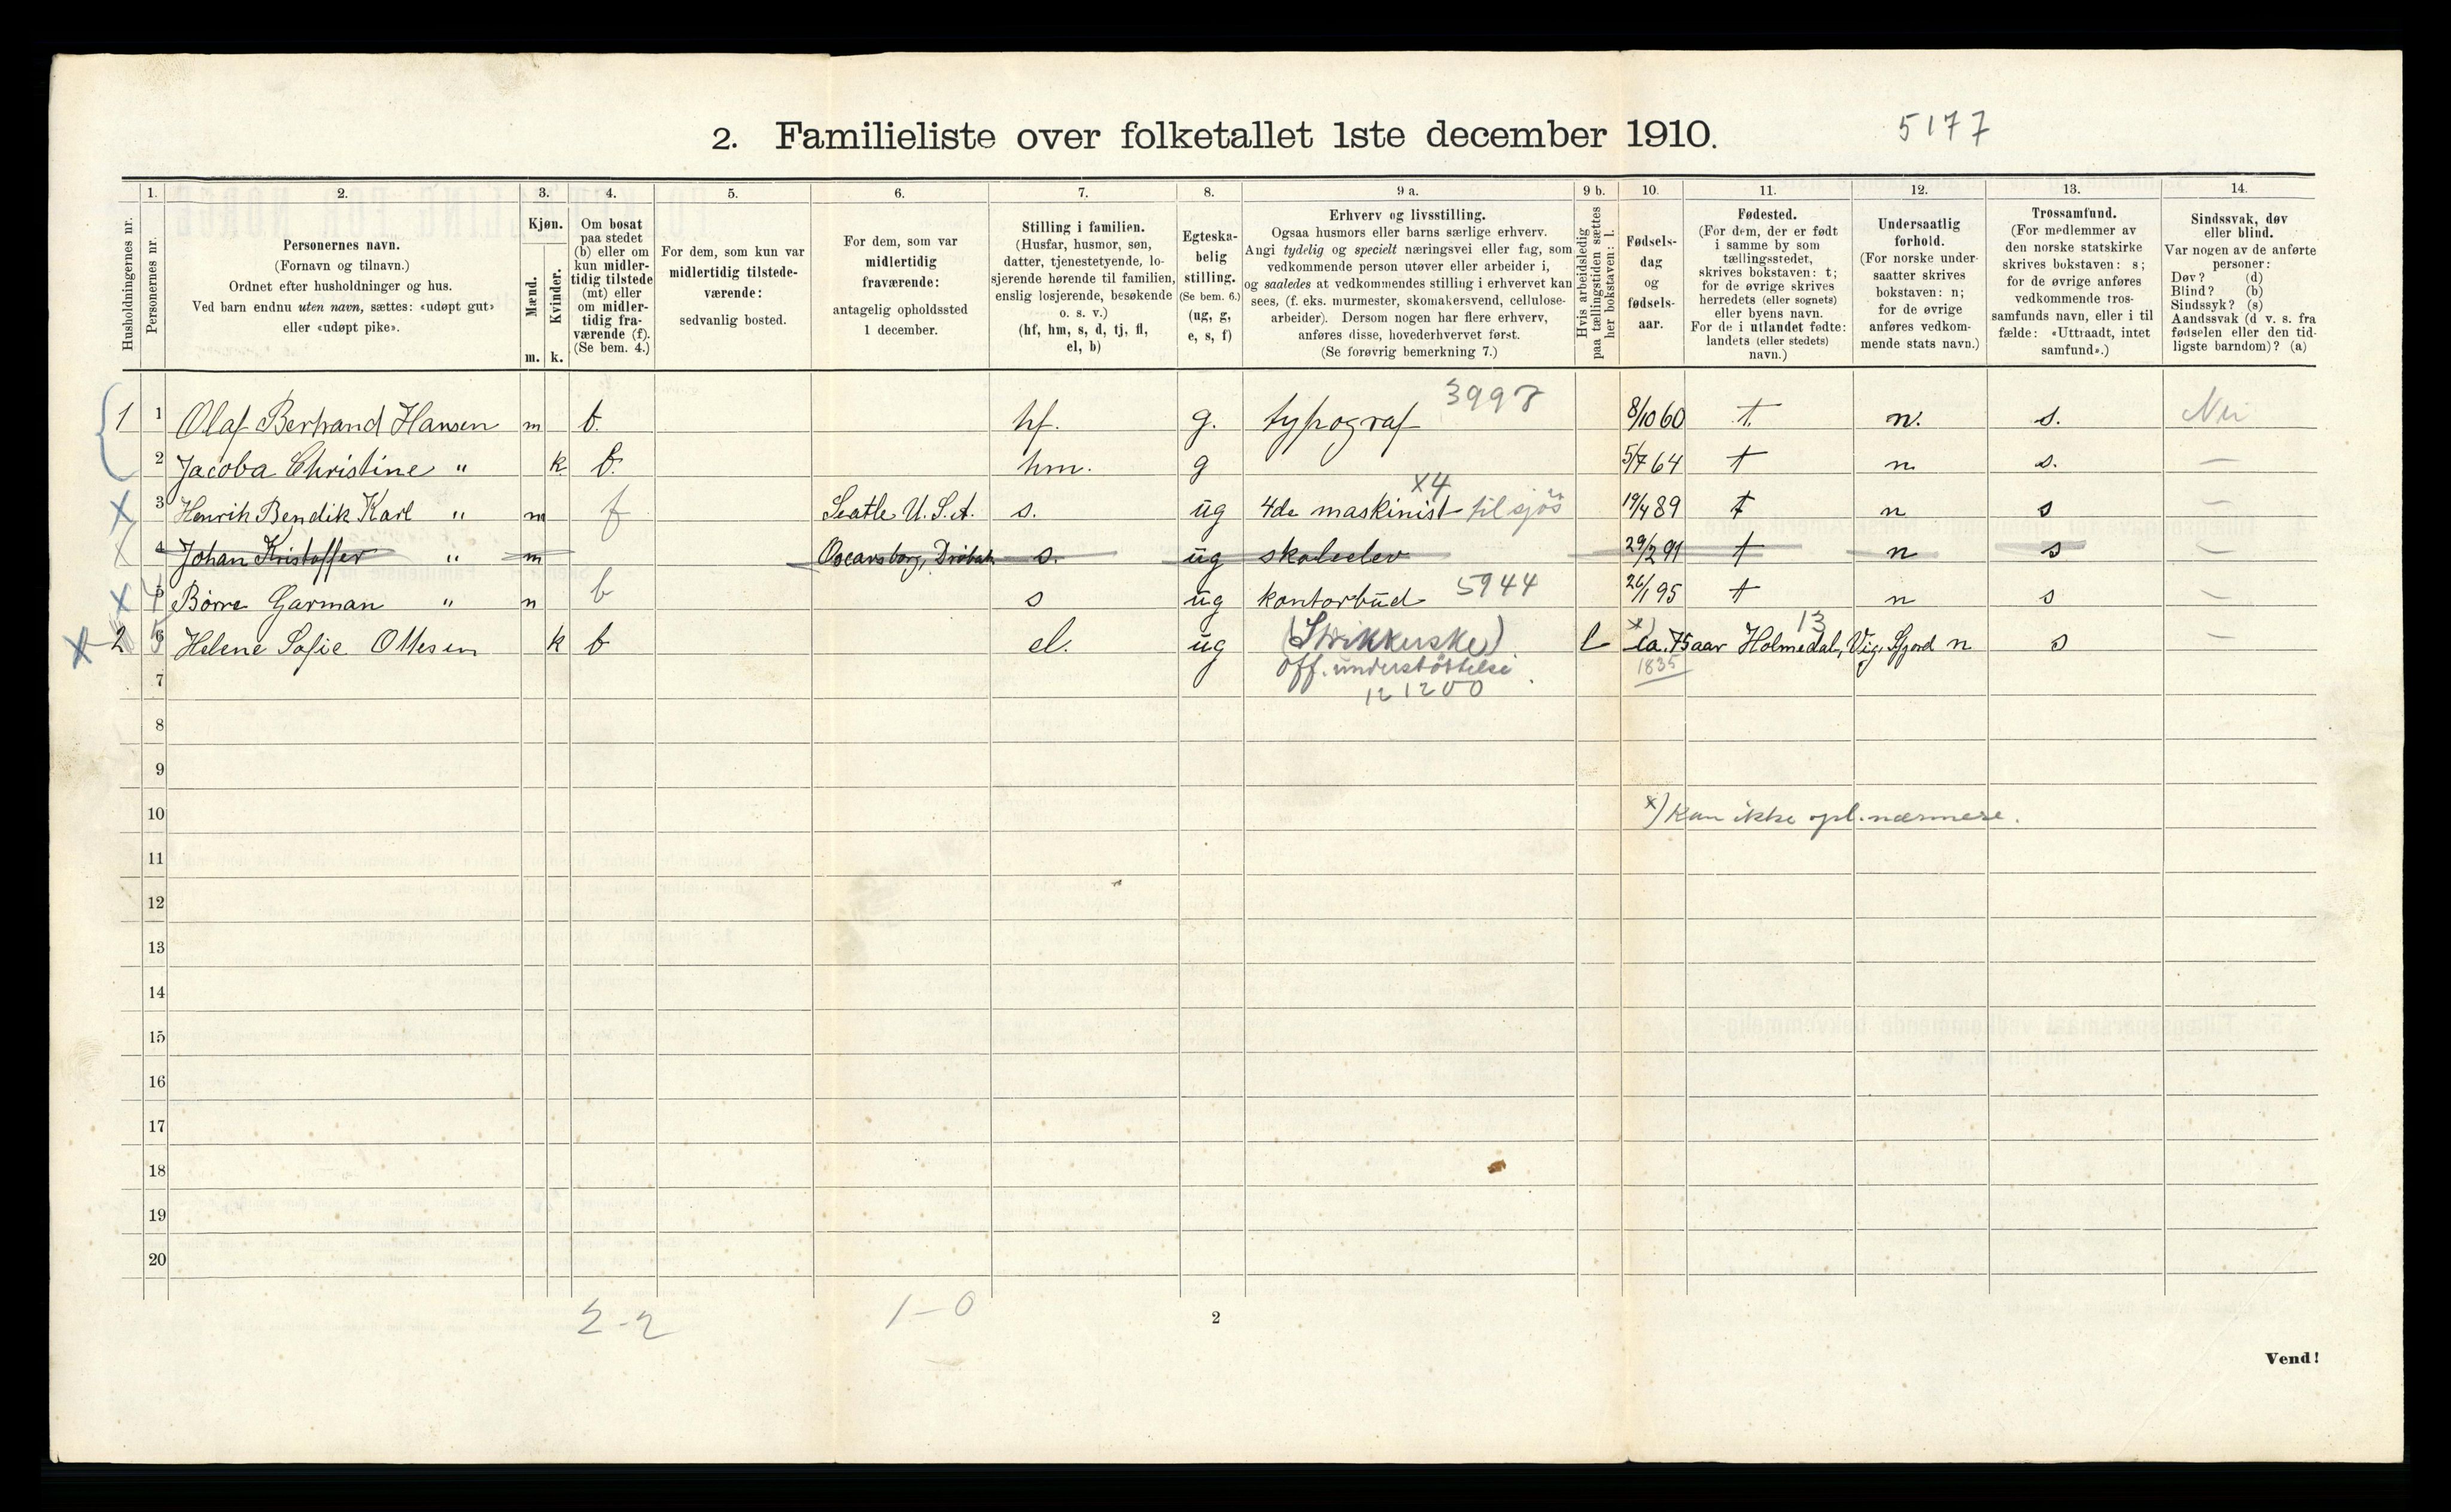 2. Familieliste over folketallet 1ste december 1910.
5177
1.
2.
3.
4.
5.
6.
7.
8.
9 a.
9 b.
10.
11.
12.
13.
14.
Husholdningernes nr.
Personernes nr.
Personernes navn.
(Fornavn og tilnavn.)
Ordnet efter husholdninger og hus.
Ved barn endnu uten navn, sættes: «udøpt gut»
eller «udøpt pike».
Kjøn.
Mænd.
Kvinder.
m. k.
Om bosat
paa stedet
(b) eller om
kun midler-
tidig tilstede
(mt) eller
om midler-
tidig fra-
værende (f).
(Se bem. 4.)
For dem, som kun var
midlertidig tilstede-
værende:
sedvanlig bosted.
For dem, som var
midlertidig
fraværende:
antagelig opholdssted
1 december.
Stilling i familien.
(Husfar, husmor, søn,
datter, tjenestetyende, lo-
sjerende hørende til familien,
enslig losjerende, besøkende
o. s. v.)
(hf, hm, s, d, tj, fl,
el, b)
Egteska-
belig
stilling.
(Se bem. 6.)
(ug, g,
e, s, f)
Erhverv og livsstilling.
Ogsaa husmors eller barns særlige erhverv.
Angi tydelig og specielt næringsvei eller fag, som
vedkommende person utøver eller arbeider i,
og saaledes at vedkommendes stilling i erhvervet kan
sees, (f. eks. murmester, skomakersvend, cellulose-
arbeider). Dersom nogen har flere erhverv,
anføres disse, hovederhvervet først.
(Se forøvrig bemerkning 7.)
Hvis arbeidsledig
paa tællingstiden sættes
her bokstaven: l.
Fødsels-
dag
og
fødsels-
aar.
Fødested.
(For dem, der er født
i samme by som
tællingsstedet,
skrives bokstaven: t;
for de øvrige skrives
herredets (eller sognets)
eller byens navn.
For de i utlandet fødte:
landets (eller stedets)
navn.)
Undersaatlig
forhold.
(For norske under-
saatter skrives
bokstaven: n;
for de øvrige
anføres vedkom-
mende stats navn.)
Trossamfund.
(For medlemmer av
den norske statskirke
skrives bokstaven: s;
for de øvrige anføres
vedkommende tros-
samfunds navn, eller i til
fælde: «Uttraadt, intet
samfund».)
Sindssvak, døv
eller blind.
Var nogen av de anførte
personer:
Døv? (d)
Blind? (b)
Sindssyk? (s)
Aandssvak (d v. s. fra
fødselen eller den tid-
ligste barndom)? (a)
3998
1 1 Olaf Bertrand Hansen m b. hf. g. typograf 8/10 60 t. n. s. Nei
2 Jacoba Christine " k b. hm. g 5/7 64 t n. s. —
X4
X 3 Henrik Bendik Karl " m f Seatle U.S.A. s. ug 4de maskinist til sjøs 19/4 89 t n s —
X 4 Johan Kristoffer " m Oscarsborg, Drøbak s. ug skoleelev 29/2 91 t n s —
X 5 4 Børre Garman " m b s ug kontorbud 5944 26/1 95 t n s —
13
X 2 6 5 Helene Sofie Ottesen k b el. ug (Strikkerske) l x) ca. 75 aar Holmedal, Vig, Sfjord n s —
off. understøttelse 1835
7
12 1200
8
9
10 x) kan ikke opl. nærmere.
11
12
13
14
15
16
17
18
19
20
2-2
1-0
2
Vend!